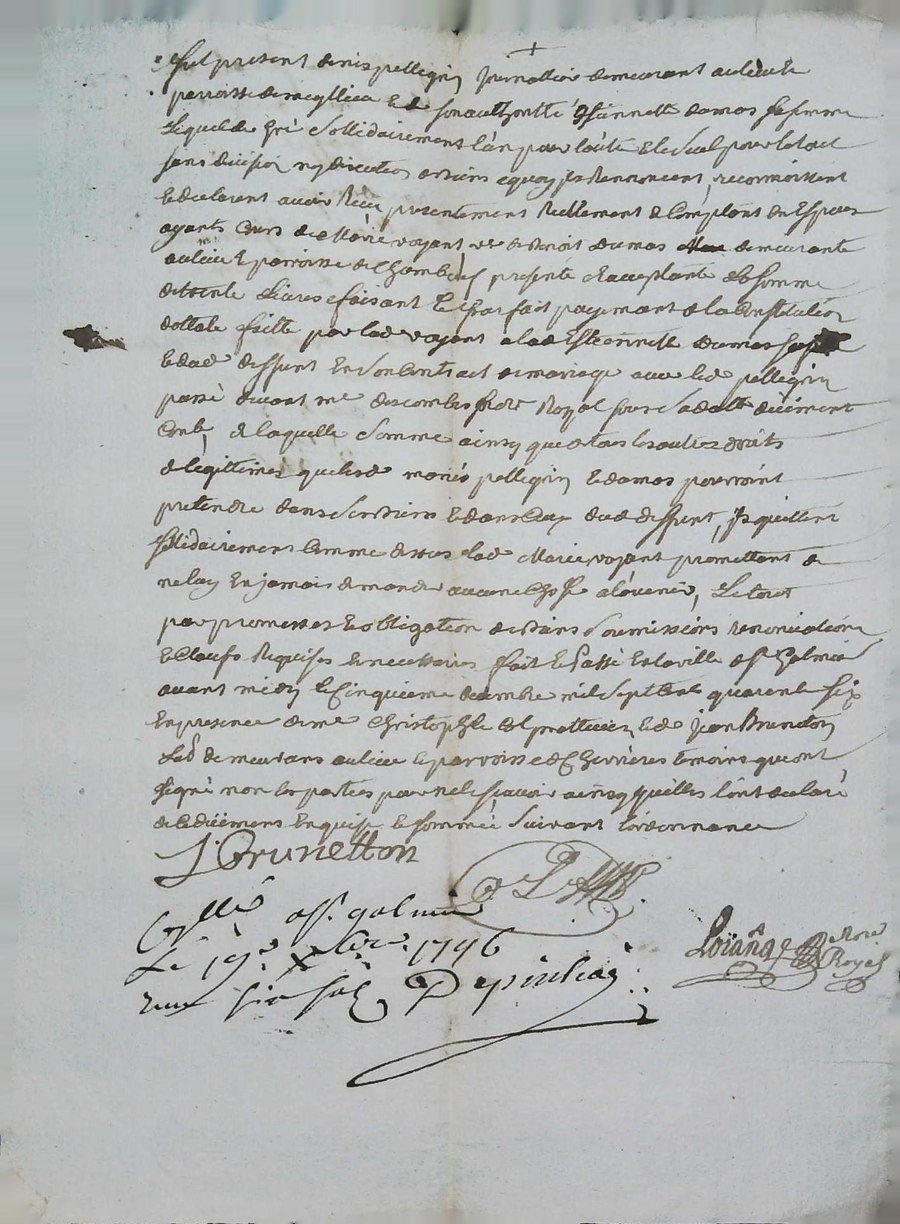 fut present denis pellegrin journallier demeurant au lieu et
parroisse de meyllieu et de son authorité Estiennette dumas sa femme
lequels de gré sollidairement l'un pour l'autre et le seul pour le tout
sans division ny discution de biens a quoy ils Renoncent, reconnoissent
et declarent avoir Reçu presentement Reellement et Comptant en Espèces
ayants cours de Marie voyant ve de benoit dumas demeurante
au lieu et parroisse de Chambeuf presente et acceptante la somme
de trente Livres faisant le parfait payemant de la Constitution
dottale faitte par lad voyant a lad Estiennette dumas sa
et dud deffunt En son Contract de mariage avec led pellegrin
passé devant me descombes no.re Royal sous sa datte duëment
Conlé, de laquelle somme ainsy que de tous les autres droits
de légitimes que lesd mariés pellegrin et dumas pourroint
pretendre dans ses biens et dans Ceux dud deffunt, ils quittent
sollidairement Comme dessus lad Marie voyant promettant de
ne luy En jamais demander aucune Chose a l'avenir, Le tout
par promesses et obligation de biens soumissions renonciations
et Clauses Requises et necessaires fait et Passé En la ville de st Galmier
avant midy le Cinquieme decembre mil sept cent quarente six
En presence de me Christophle et de jean Bruneton
Led demeurans au lieu et parroisse de Chevrières temoins qui ont
signé non les parties pour ne le sçavoir ainsy qu'elles l'ont declaré
de ce duëment Enquises et sommés suivant l'ordonnance
J. Brunetton
Coller a st. galmier
Le 19e. Xbre. 1746
reçu six sols Depinhac
Lorange no.re
Royal